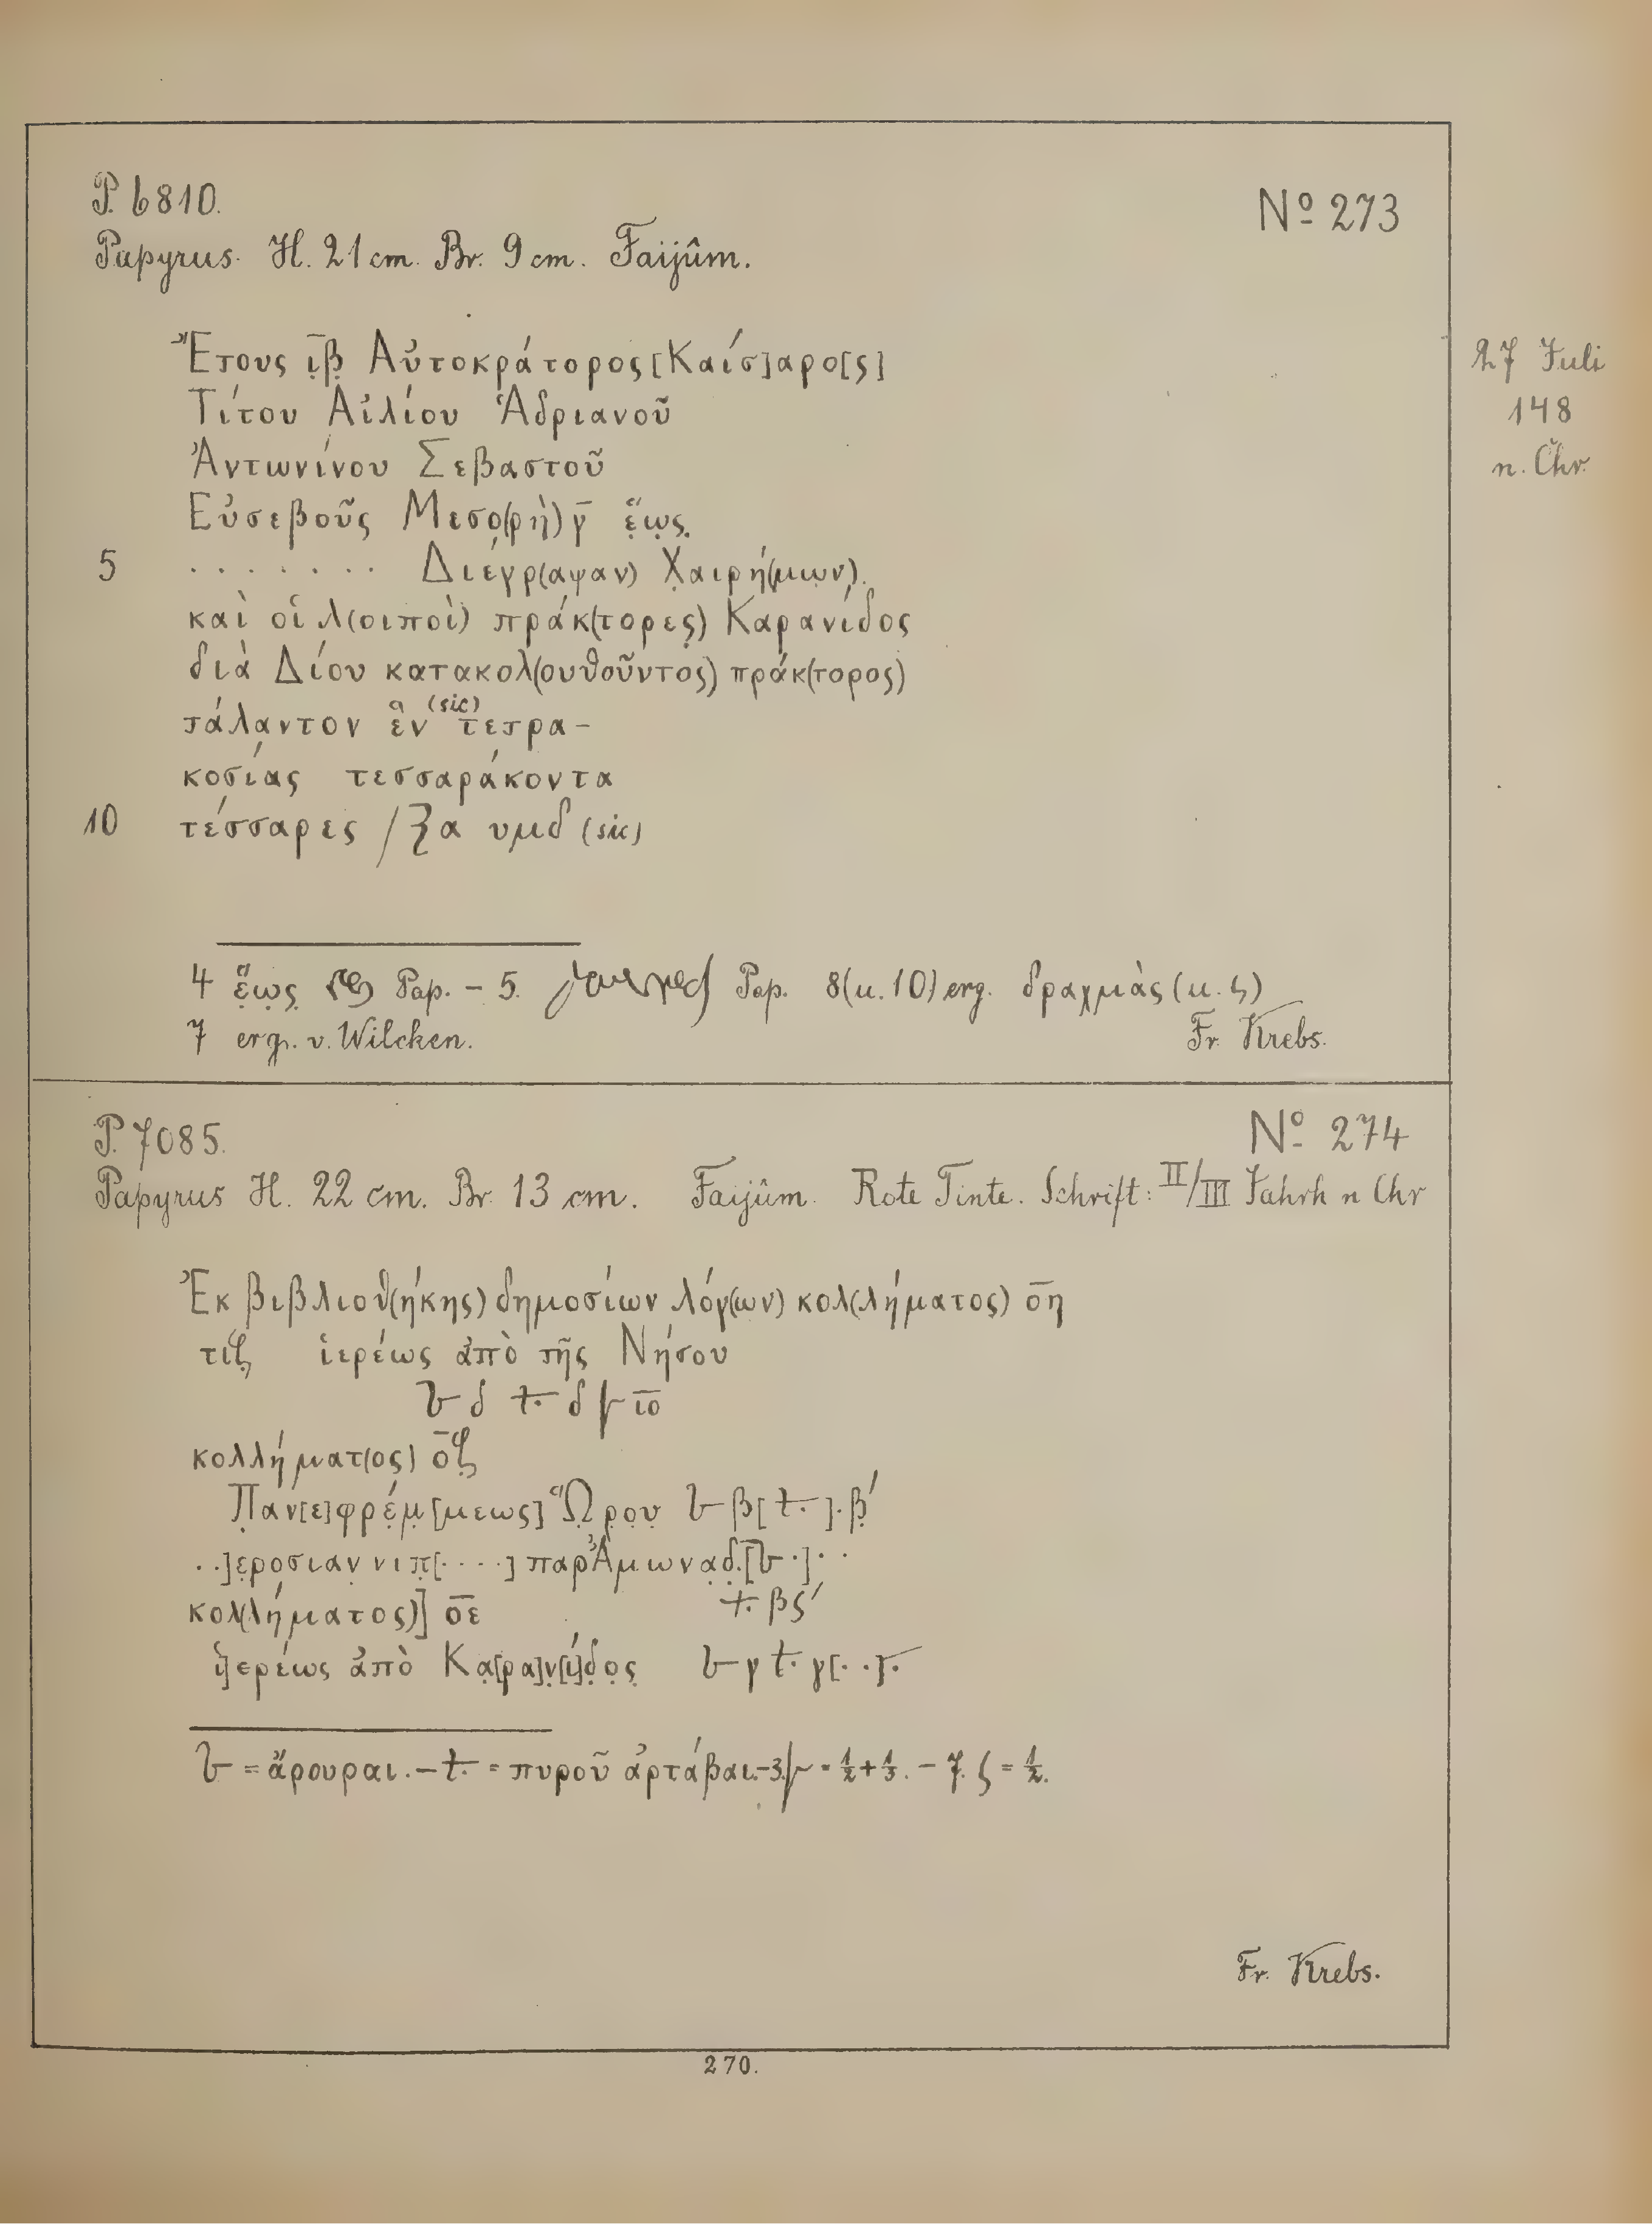 P. 6810.
Nº 273
Papyrus. H. 21 cm. Br. 9 cm. Faijûm.
Ἔτους ι̣̅β̣̅ Αὐτοκράτορος [Καίσ]αρο[ς]
27 Juli
148
n. Chr.
Τίτου Αἰλίου Ἁδριανοῦ
Ἀντωνίνου Σεβαστοῦ
Εὐσεβοῦς Μεσο(ρὴ) γ̅ ἕ̣ω̣ς̣
5 . . . . . . . Διέγρ(αψαν) Χ̣αιρή(μων)
καὶ οἱ λ(οιποὶ) πράκ(τορες) Καρανίδος
διὰ Δίου κατακολ(ουθοῦντος) πράκ(τορος)
τάλαντον ἓν (sic) τετρα-
κοσίας τεσσαράκοντα
10 τέσσαρες / α υμδ (sic)
4 ἕ̣ω̣ς̣ Pap. – 5. Pap. 8 (u. 10) erg. δραχμὰς (u. ϛ)
7 erg. v. Wilcken.
Fr. Krebs.
P. 7085.
Nº 274
Papyrus H. 22 cm. Br. 13 cm. Faijûm. Rote Tinte. Schrift: II/III Jahrh n Chr
Ἐκ βιβλιοθ(ήκης) δημοσίων λόγ(ων) κολ(λήματος) ο̅η
τιζ ἱερέως ἀπὸ τῆς Νήσου
δ δ ι̅ο̅
κολλήματ(ος) ο̅ζ
Π̣αν[ε]φρέ̣μ̣[μεως] Ὥ̣ρ̣ο̣υ̣ β[ ].β̣´
. .]ε̣ροσιαν̣ νιπ̣[. . . .] παρ᾽ Ἀμωνα̣δ̣.[ .] . .
κολ(λήματος)] ο̅ε̅ βϛ´
ἱ]ερέως ἀπὸ Κα̣[ρα]ν̣[ί]δ̣ο̣ς̣ γ γ[. .].
= ἄρουραι. – = πυροῦ ἀρτάβαι. – 3. = ½ + ⅓. – 7. ϛ = ½.
Fr. Krebs.
270.